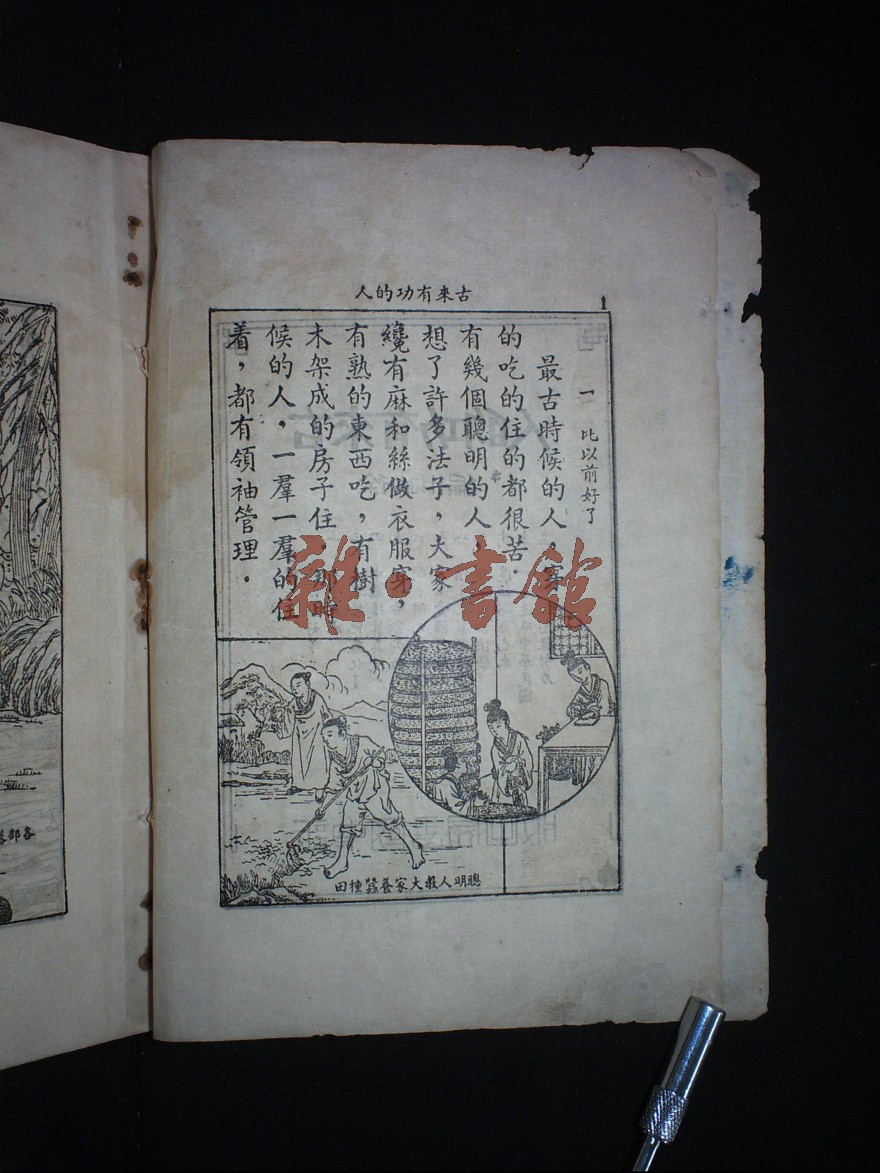 古來有功的人
1
一 比以前好了
最古時候的人，穿
的吃的住的都很苦．
有幾個聰明的人，
想了許多法子，大家
纔有麻和絲做衣服穿，
有熟的東西吃，有樹
木架成的房子住．那時
候的人，一羣一羣的住
着，都有領袖管理．
聰明人教大家養蠶種田
各部
雜·書館